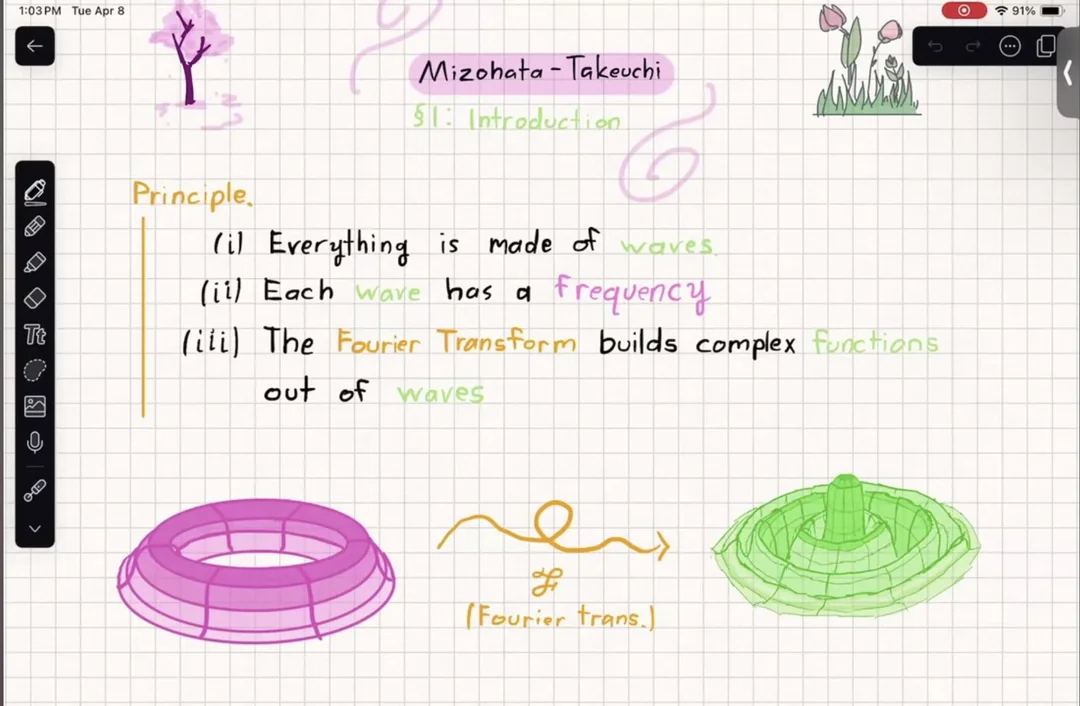 1:03 PM Tue Apr 8
91%
Mizohata-Takeuchi
§1: Introduction
Principle.
(i) Everything is made of waves.
(ii) Each wave has a frequency
(iii) The Fourier Transform builds complex functions
out of waves
Tt
F
(Fourier trans.)